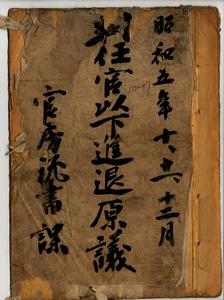 昭和五年十、十一、十二月
判任官以下進退原議
官房秘書課